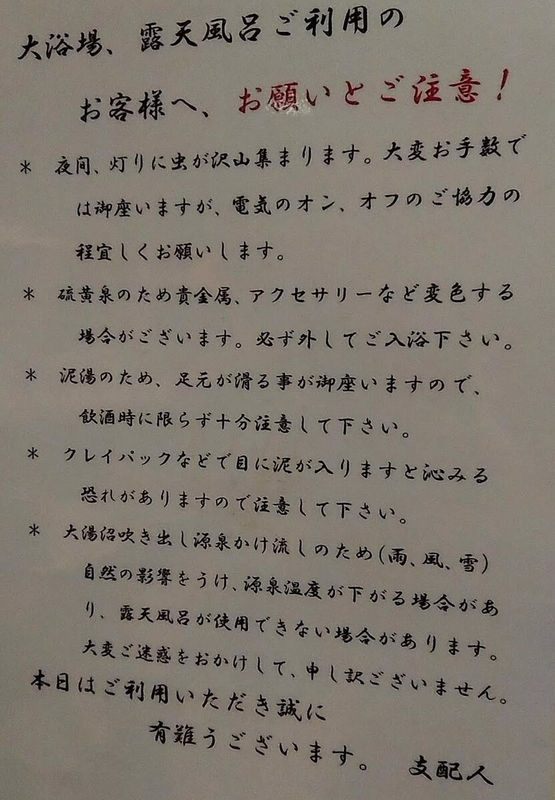 大浴場、露天風呂ご利用の
お客様へ、お願いとご注意!
* 夜間、灯りに虫が沢山集まります。大変お手数で
は御座いますが、電気のオン、オフのご協力の
程宜しくお願いします。
* 硫黄泉のため貴金属、アクセサリーなど変色する
場合がございます。必ず外してご入浴下さい。
* 泥湯のため、足元が滑る事が御座いますので、
飲酒時に限らず十分注意して下さい。
* クレイパックなどで目に泥が入りますと沁みる
恐れがありますので注意して下さい。
* 大湯沼吹き出し源泉かけ流しのため(雨、風、雪)
自然の影響をうけ、源泉温度が下がる場合があ
り、露天風呂が使用できない場合があります。
大変ご迷惑をおかけして、申し訳ございません。
本日はご利用いただき誠に
有難うございます。 支配人